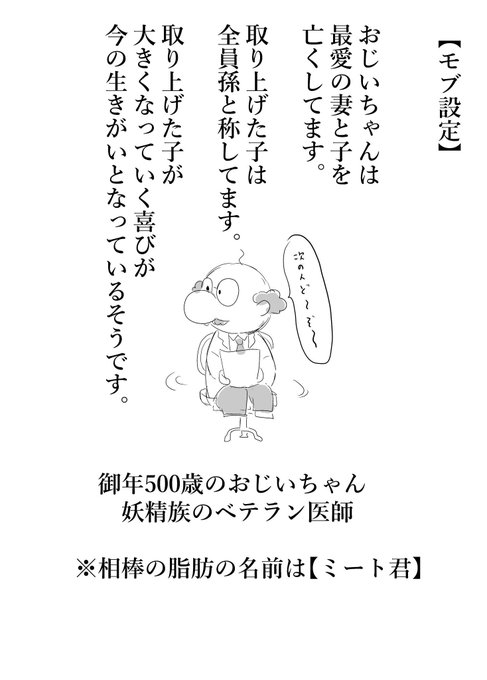 【モブ設定】
おじいちゃんは
最愛の妻と子を
亡くしてます。
取り上げた子は
全員孫と称してます。
取り上げた子が
大きくなっていく喜びが
今の生きがいとなっているそうです。
次の人ど〜
ぞ〜
御年500歳のおじいちゃん
妖精族のベテラン医師
※相棒の脂肪の名前は【ミート君】